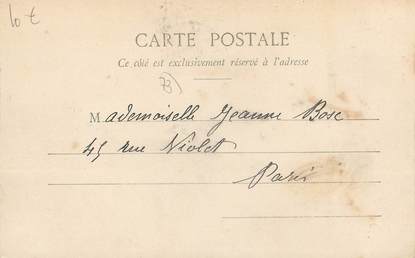 10 €
CARTE POSTALE
Ce côté est exclusivement réservé à l'adresse
73
Mademoiselle Jeanne Bosc
45 rue Violet
Paris